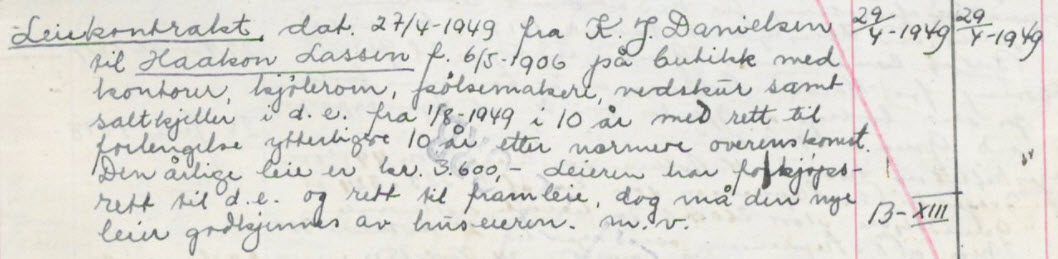 Leiekontrakt, dat. 27/4-1949 fra K. J. Danielsen 29/4-1949 29/4-1949
til Haakon Lassen f. 6/5-1906 på butikk med
kontorer, kjølerom, pølsemakeri, vedskur samt
saltkjeller i d. e. fra 1/8-1949 i 10 år med rett til
forlengelse ytterligere 10 år etter nærmere overenskomst.
Den årlige leie er kr. 3.600,- Leieren har forkjøps-
rett til d.e. og rett til framleie, dog må den nye B-XIII
leier godkjennes av huseieren. m.v.